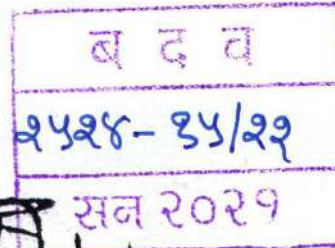 ब द व
२५२४-१५/२२
सन २०२१